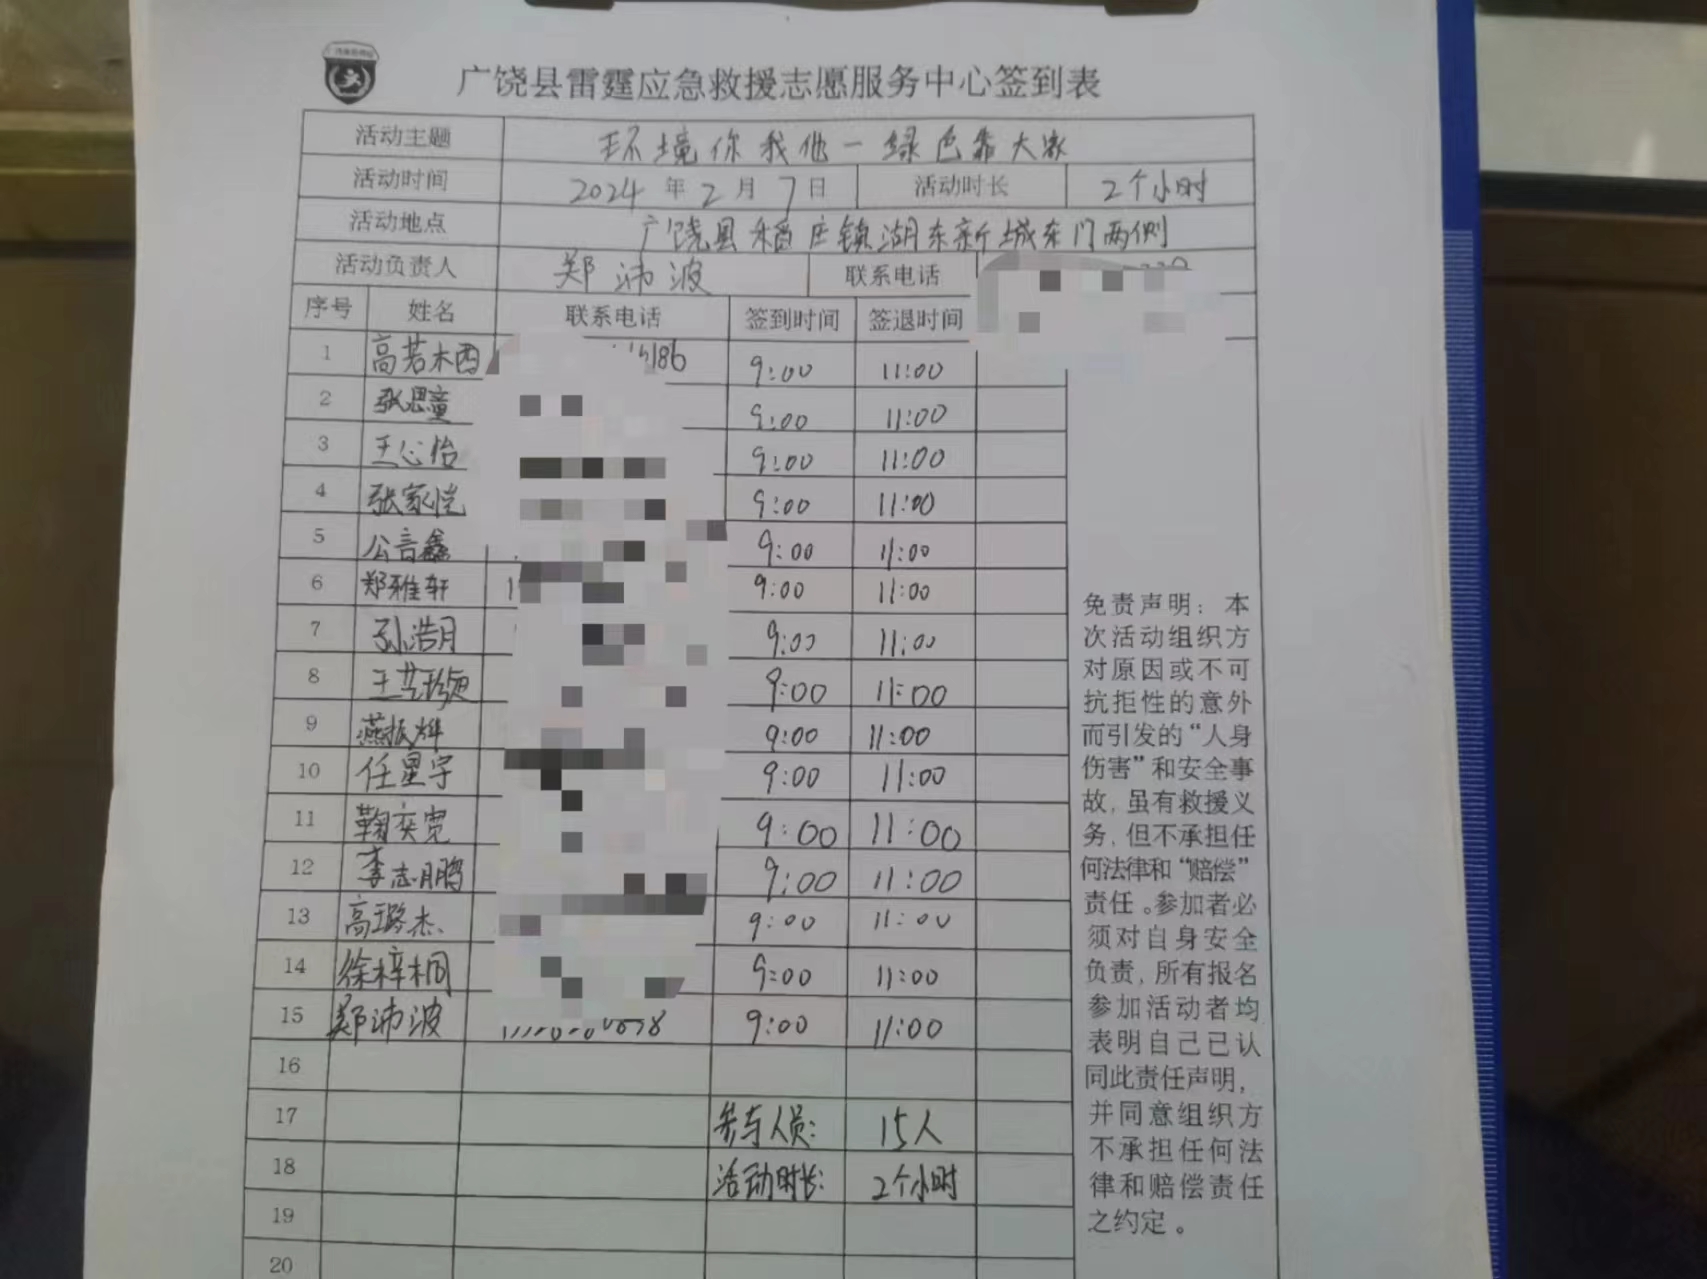 广饶县雷霆应急救援志愿服务中心签到表
活动主题 环境你我他一绿色靠大家
活动时间 2024年2月7日 活动时长 2个小时
活动地点 广饶县稻庄镇湖东新城东门两侧
活动负责人 郑沛波 联系电话
序号 姓名 联系电话 签到时间 签退时间
1 高若木西 186 9:00 11:00
2 张思童 9:00 11:00
3 王心怡 9:00 11:00
4 张家恺 9:00 11:00
5 公言鑫 9:00 11:00
6 郑雅轩 9:00 11:00
7 孙浩月 9:00 11:00
8 9:00 11:00
9 燕振辉 9:00 11:00
10 任星宇 9:00 11:00
11 鞠奕宽 9:00 11:00
12 李志鹏 9:00 11:00
13 高璐杰 9:00 11:00
14 徐梓桐 9:00 11:00
15 郑沛波 9:00 11:00
16
17 参与人员: 15人
18 活动时长: 2个小时
19
20
免责声明：本
次活动组织方
对原因或不可
抗拒性的意外
而引发的“人身
伤害”和安全事
故，虽有救援义
务，但不承担任
何法律和“赔偿”
责任。参加者必
须对自身安全
负责，所有报名
参加活动者均
表明自己已认
同此责任声明，
并同意组织方
不承担任何法
律和赔偿责任
之约定。